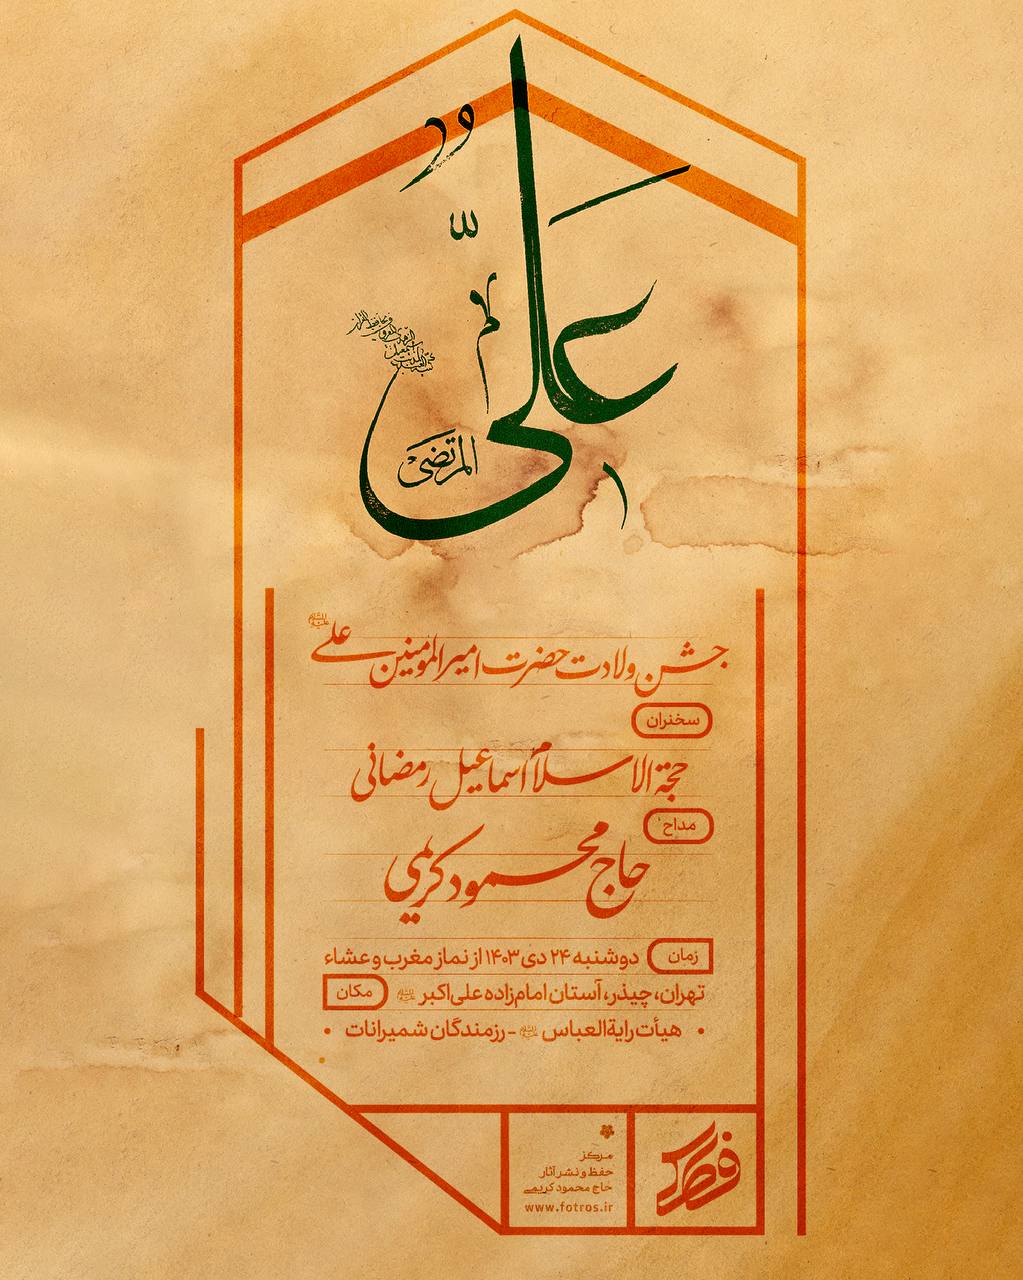 علی
ولی الله
المرتضی
جشن ولادت حضرت امیرالمومنین علی علیه‌السلام
سخنران
حجة الاسلام اسماعیل رمضانی
مداح
حاج محمود کریمی
زمان دوشنبه ۲۴ دی ۱۴۰۳ از نماز مغرب و عشاء
تهران، چیذر، آستان امام‌زاده علی‌اکبر مکان
• هیأت رایة‌العباس - رزمندگان شمیرانات •
مرکز
حفظ و نشر آثار
حاج محمود کریمی
www.fotros.ir
فطرس